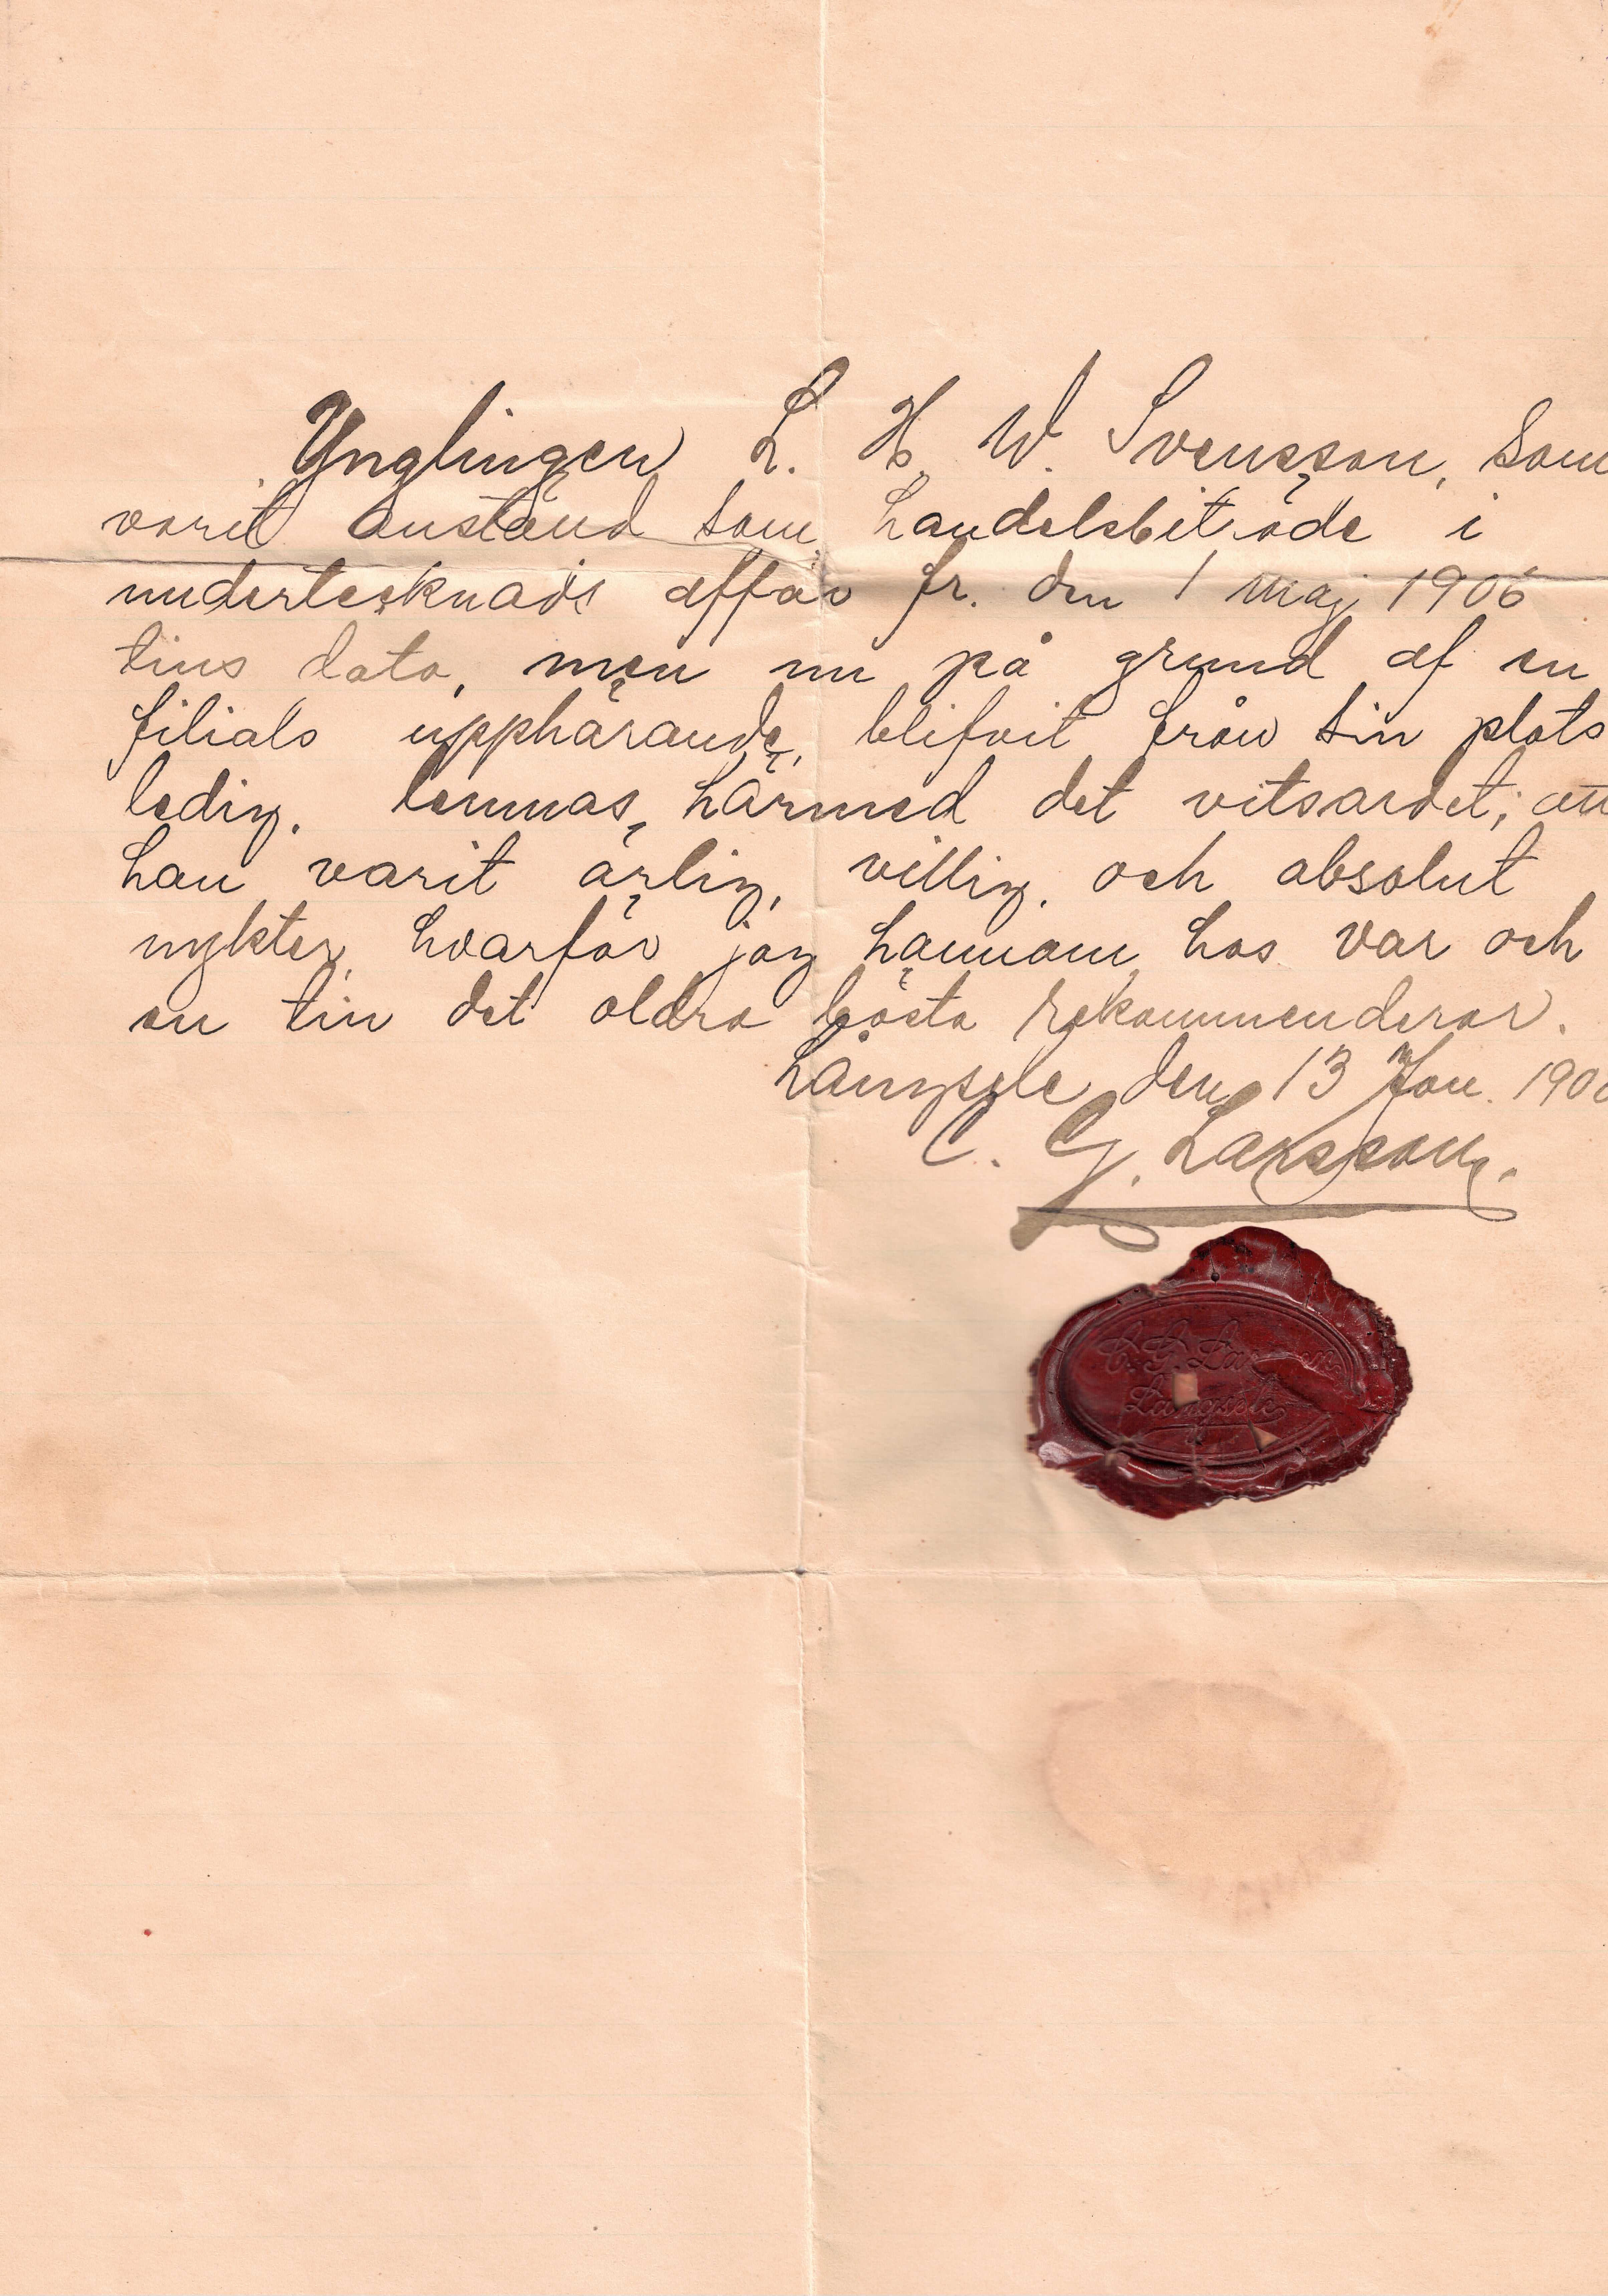 Ynglingen L. H. W. Svensson, som
varit anstäld som handelsbiträde i
undertecknads affär fr. den 1 maj 1906
tills dato, men nu på grund af en
filials upphörande, blifvit från sin plats
ledig, lemnas härmed det vitsordet, att
han varit ärlig, villig och absolut
nykter, hvarför jag honom hos var och
en till det aldra bästa rekommenderar.
Långsele den 13 Jan. 190
C. G. Larsson.
C. G. Larsson
Långsele